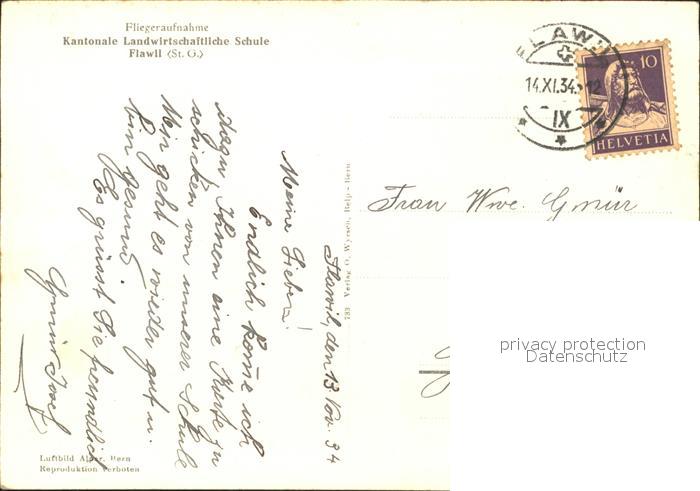 Fliegeraufnahme
Kantonale Landwirtschaftliche Schule
Flawil (St. G.)
FLAWIL
14.XI.34.-12
IX
10
HELVETIA
Flawil, den 13 Nov. 34
Meine Lieben!
Endlich kome ich
dazu Ihnen eine Karte zu
schicken von unserer Schule
Mir geht es wieder gut u.
bin gesund.
Es grüsst Sie freundlich
Gmür Josef
783 Verlag O. Wyrsch, Belp - Bern
Frau Wwe. Gmür
privacy protection
Datenschutz
Luftbild Bern
Reproduktion verboten